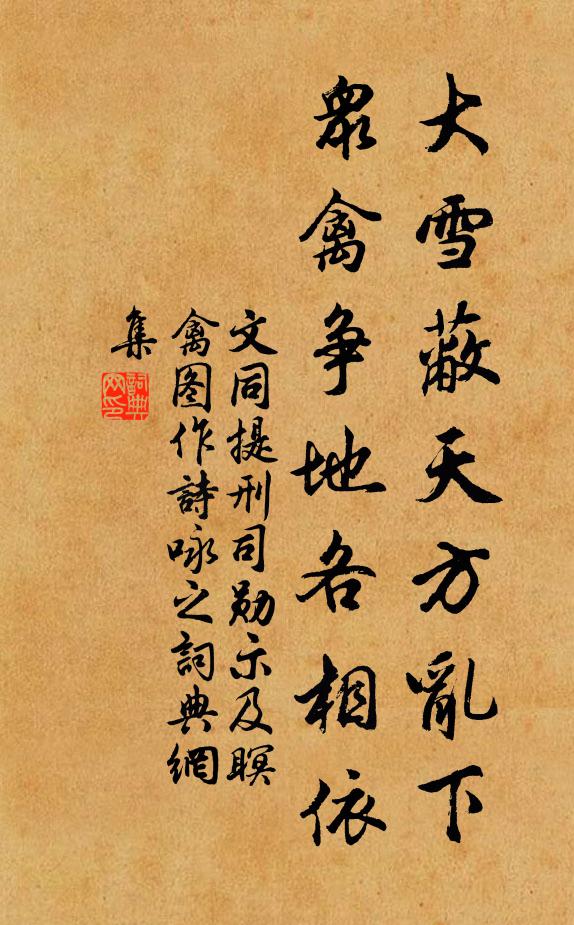 大雪蔽天方亂下
衆禽争地各相依
文同提刑司勋示及瞑
禽图作詩咏之詞典網
集
詞典
网印